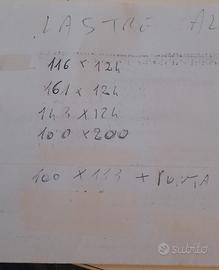 LASTRE AL
116 x 124
161 x 124
143 x 124
100 x 200
100 x 143 + PUNTA
subito